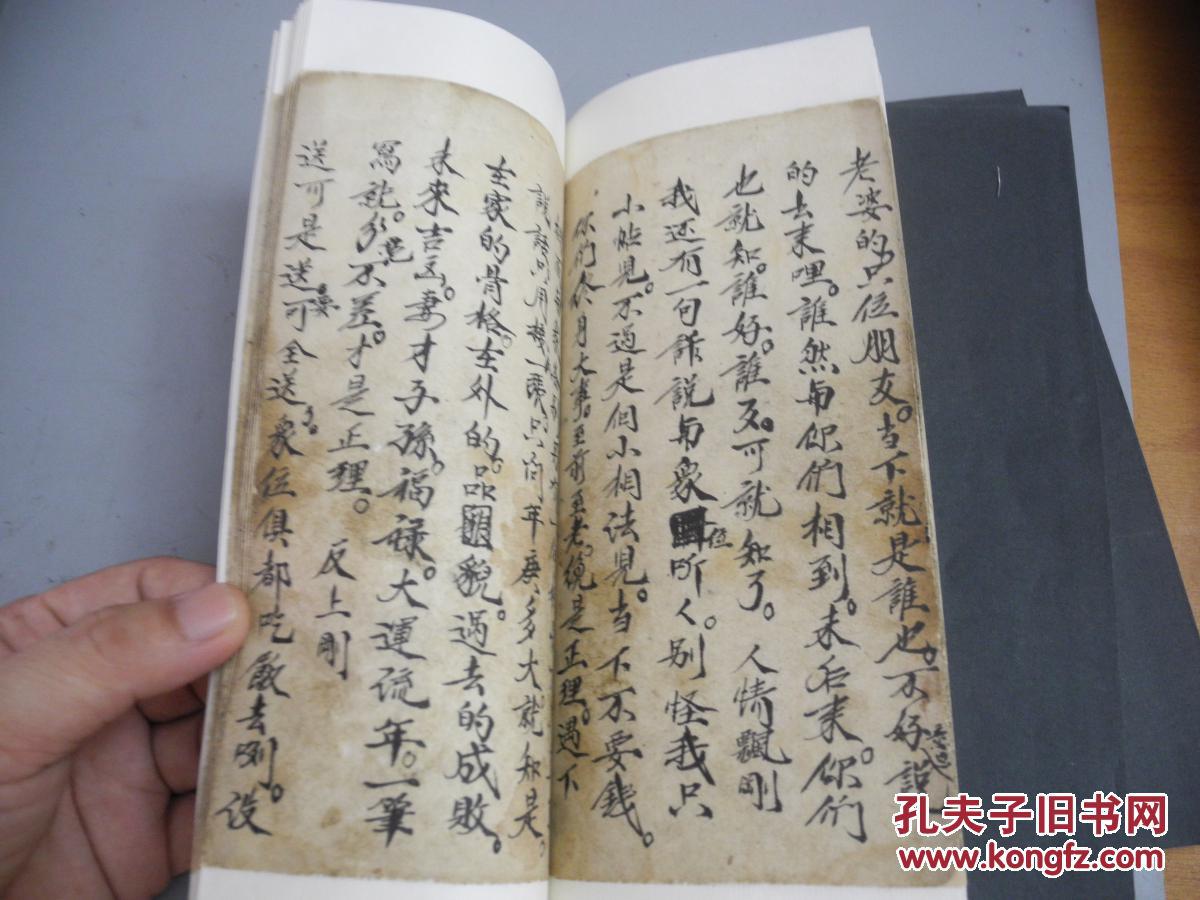 老婆的只位朋友。当下就是誰也。不好說
的去来哩。誰然與你們相到。未后来。你們
也就知。誰好。誰歹。可就知了。人情飄剛
我还有一句話說與衆位所人。别怪我只
小能見。不过是個小相法見。当下不要錢。
你們終月大事。至前至老。總是正理。過下
只问年庚、多大就知是。
主家的骨格。主外的。品貌。過去的成敗。
未来吉凶。妻才子孫。福祿。大運流年。一筆
寫就。分毫不差。才是正理。反上剛
送可是送可要全送了。衆位俱都吃飯去咧。设
孔夫子旧书网
www.kongfz.com